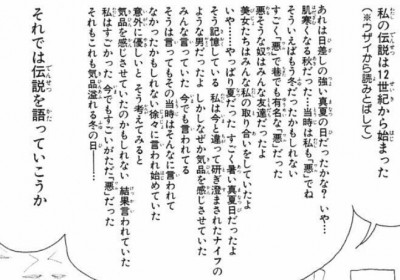 私の伝説は12世紀から始まった
(※ウザイから読みとばして)
あれは日差しの強い真夏日だったかな？いや…
肌寒くなる秋だっ 当時は私も「悪」でね
そういえばもう冬だったかもしれない
すごく「悪」で巷でも有名な「悪」だった
悪そうな奴はみんな友達だったよ
いや……やっぱり夏だった すごく暑い真夏日だったよ
美女たちはみんな私の取り合いをしていたよ
そう記憶している 私は今と違って研ぎ澄まされたナイフの
ような男だったよ しかしなぜか気品を感じさせていたの
みんな言っていた 今でも言われてる
そうは言ってもその当時はそんなに言われて
なかったかもしれない徐々に言われ始めていた
意外に優しいと そう考えてみると
気品を感じさせていたのかもしれない 結果言われていた
私はすごかった 今でもすごいがただ「悪」だった
それもこれも気品溢れる冬の日――！
それでは伝説を語っていこうか